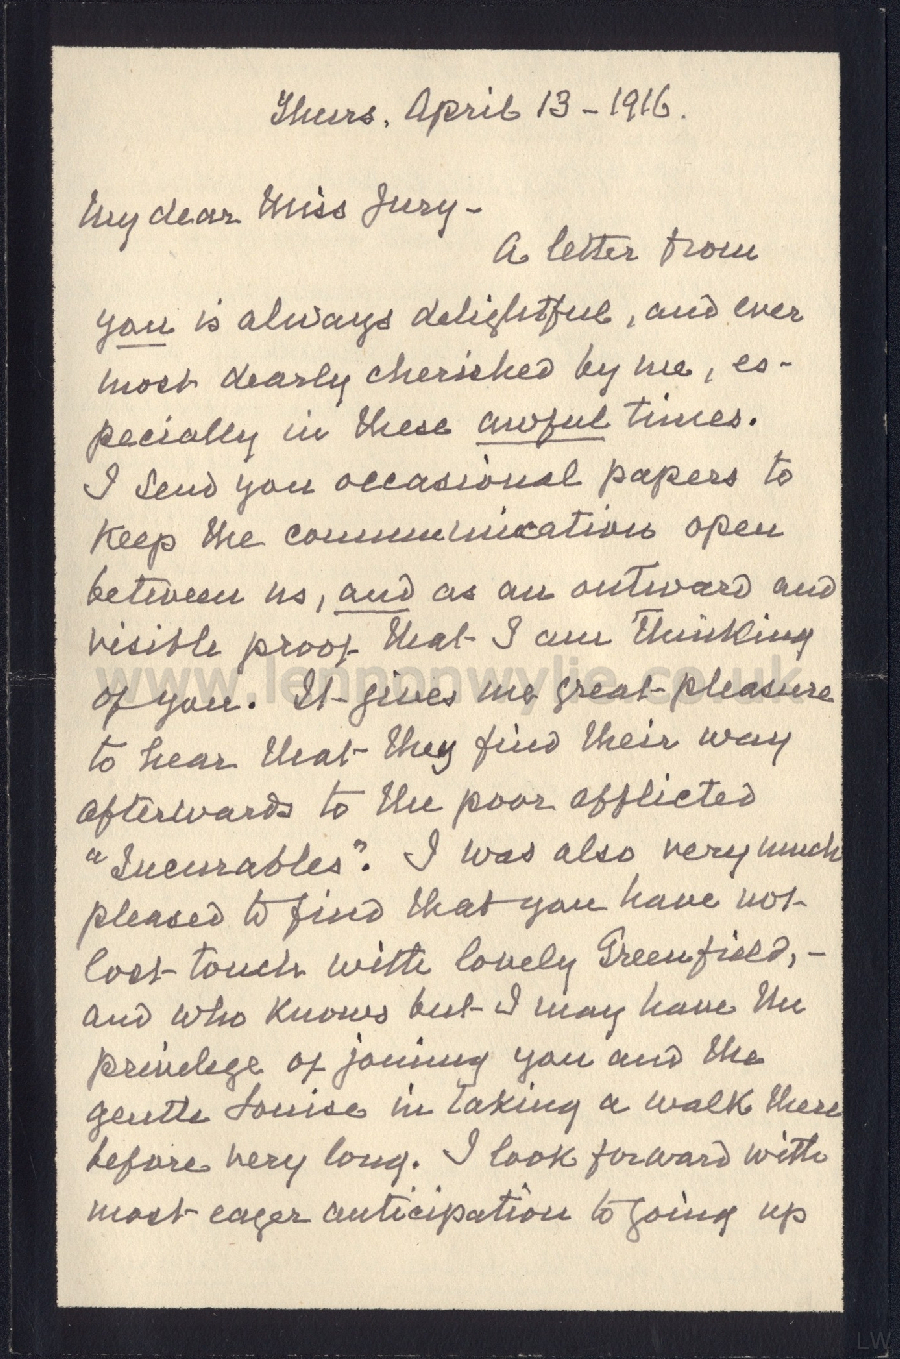 Thurs. April 13 - 1916.
My dear Miss Jury -
A letter from
you is always delightful, and ever
most dearly cherished by me, es-
pecially in these awful times.
I send you occasional papers to
keep the communication open
between us, and as an outward and
visible proof that I am thinking
of you. It gives me great pleasure
to hear that they find their way
afterwards to the poor afflicted
"Incurables". I was also very much
pleased to find that you have not
lost touch with lovely Greenfield, -
and who knows but I may have the
privilege of joining you and the
gentle Louise in taking a walk there
before very long. I look forward with
most eager anticipation to going up
www.lennonwylie.co.uk
LW